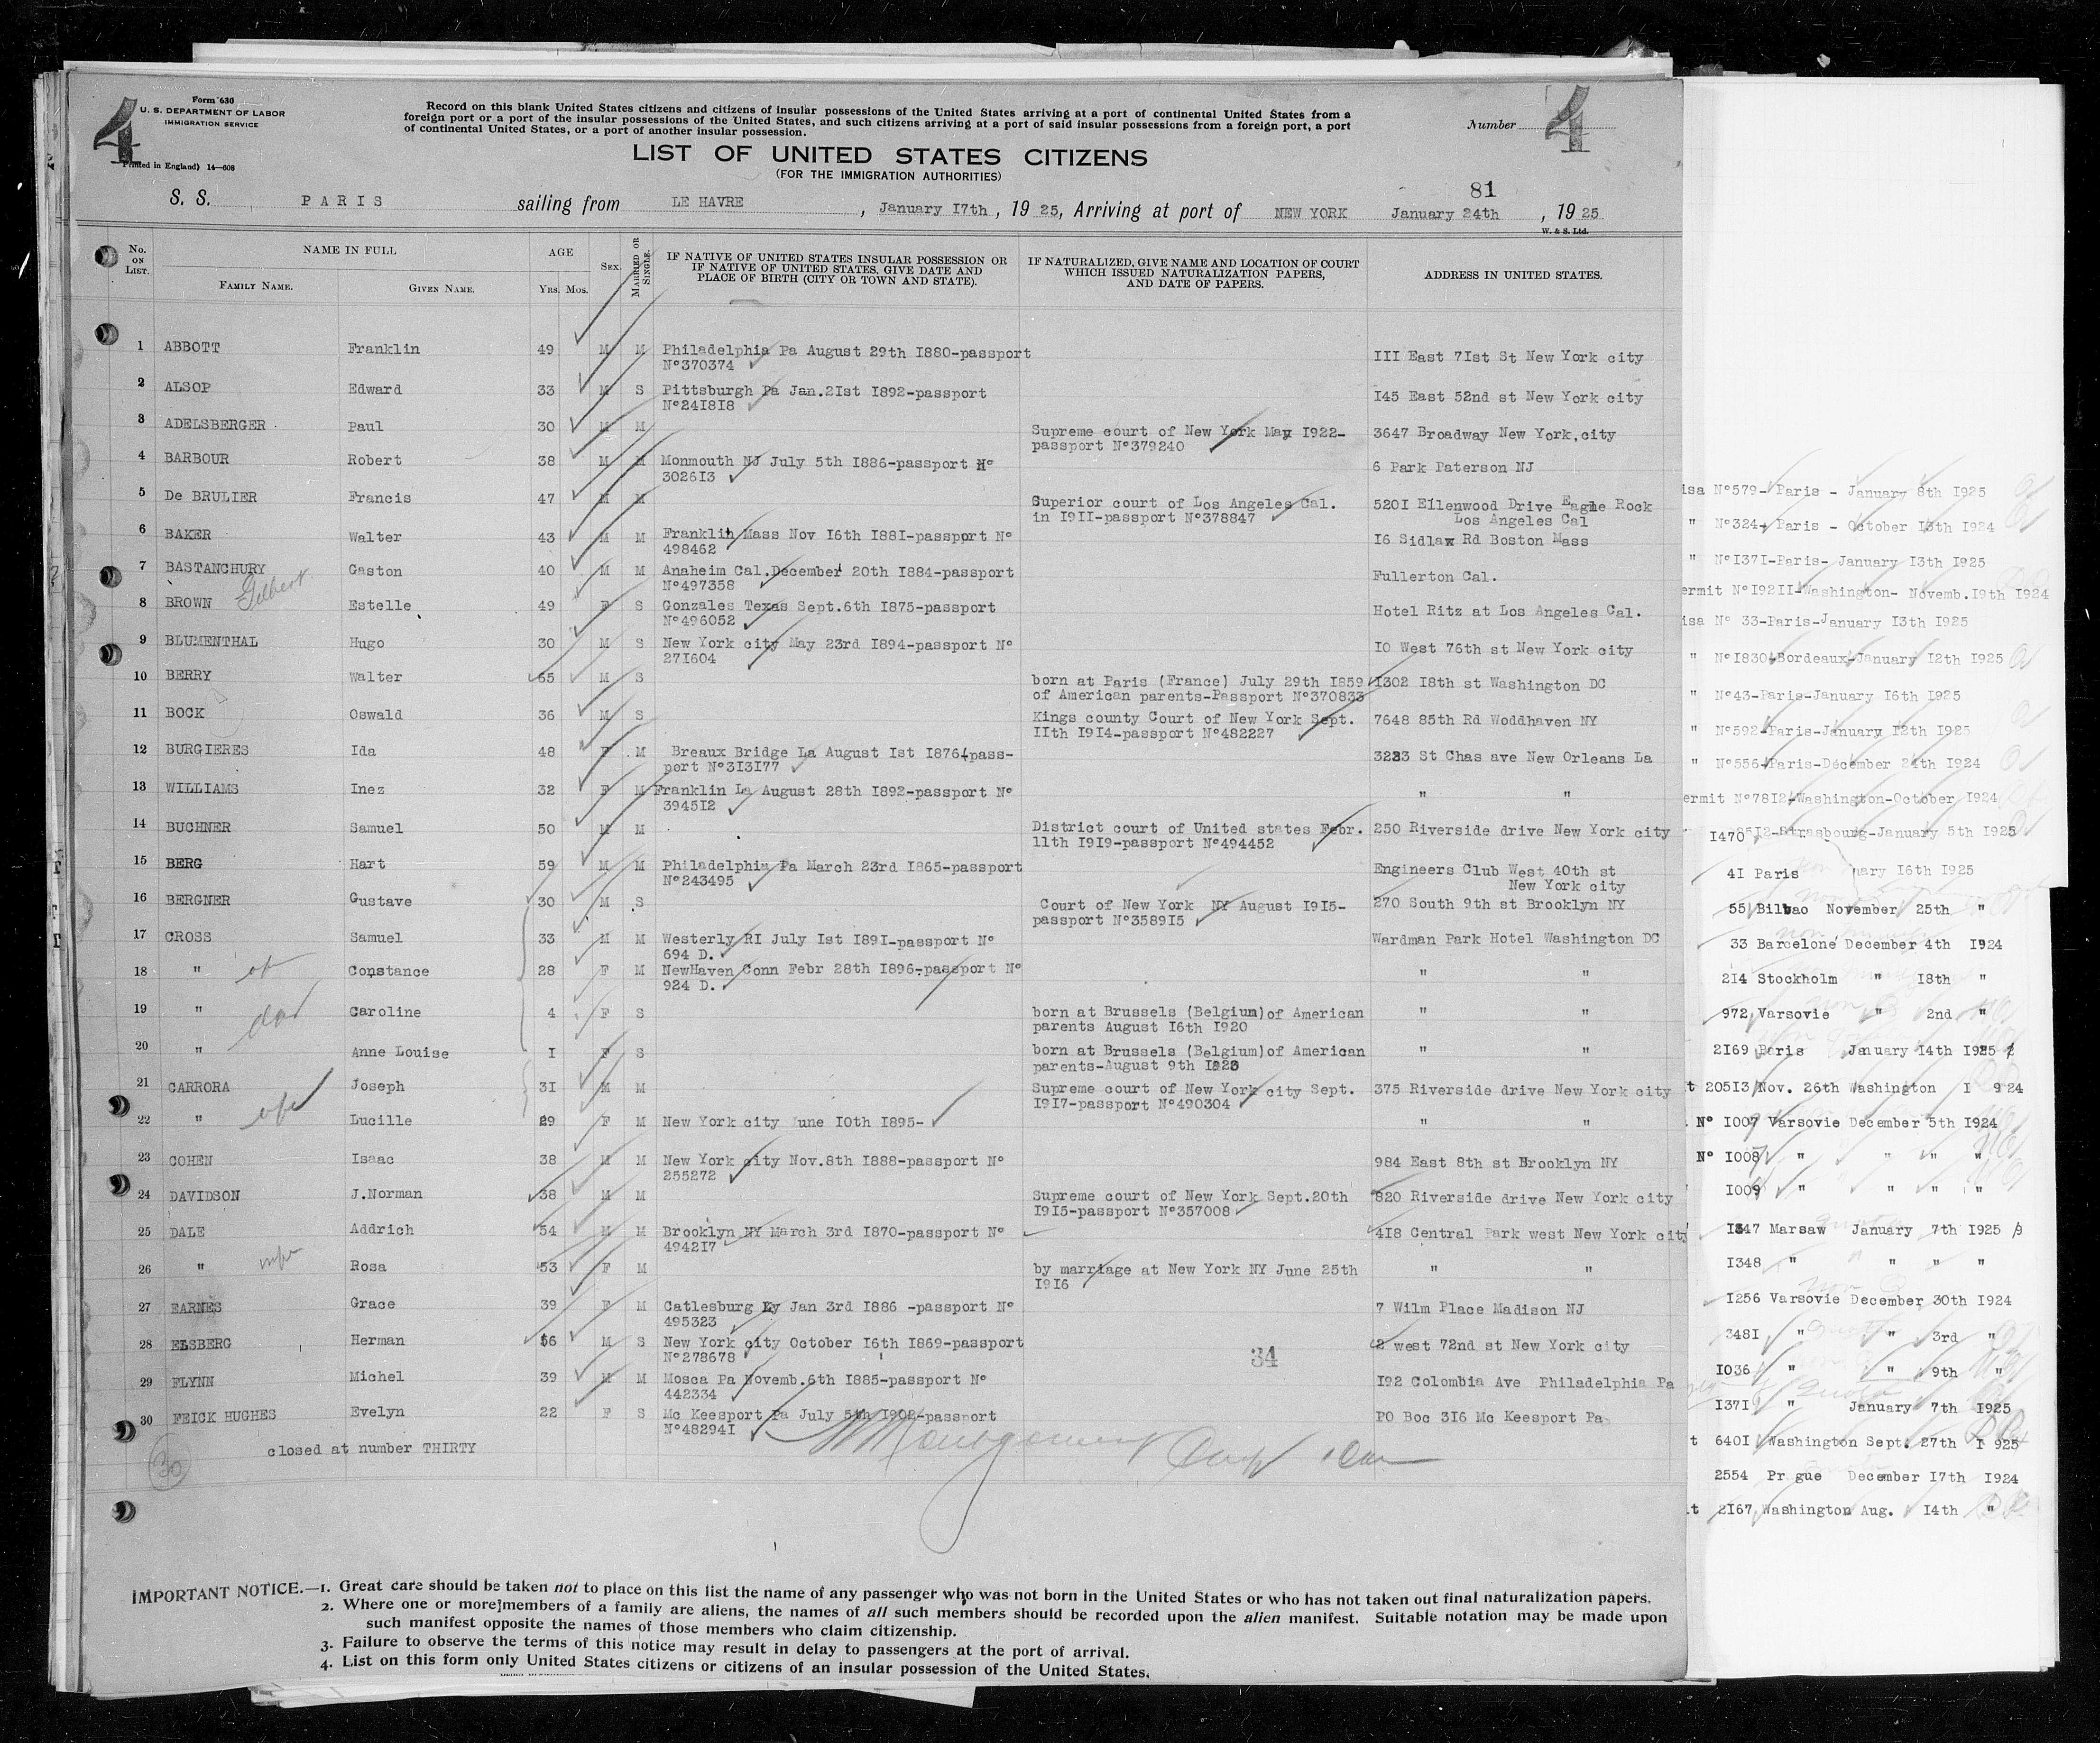 4
Form 630
U. S. DEPARTMENT OF LABOR
IMMIGRATION SERVICE
Printed in England) 14—608
Record on this blank United States citizens and citizens of insular possessions of the United States arriving at a port of continental United States from a
foreign port or a port of the insular possessions of the United States, and such citizens arriving at a port of said insular possessions from a foreign port, a port
of continental United States, or a port of another insular possession.
Number 4
LIST OF UNITED STATES CITIZENS
(FOR THE IMMIGRATION AUTHORITIES)
81
S. S. PARIS sailing from LE HAVRE, January I7th, 19 25, Arriving at port of NEW YORK January 24th, 19 25
W. & S. Ltd.
No. ON LIST. NAME IN FULL AGE SEX. MARRIED OR SINGLE. IF NATIVE OF UNITED STATES INSULAR POSSESSION OR IF NATIVE OF UNITED STATES, GIVE DATE AND PLACE OF BIRTH (CITY OR TOWN AND STATE). IF NATURALIZED, GIVE NAME AND LOCATION OF COURT WHICH ISSUED NATURALIZATION PAPERS, AND DATE OF PAPERS. ADDRESS IN UNITED STATES.
FAMILY NAME. GIVEN NAME. YRS. MOS.
1 ABBOTT Franklin 49 M M Philadelphia Pa August 29th I880-passport III East 7Ist St New York city
N°370374
2 ALSOP Edward 33 M S Pittsburgh Pa Jan.2Ist I892-passport I45 East 52nd st New York city
N°24I8I8
3 ADELSBERGER Paul 30 M M Supreme court of New York May I922- 3647 Broadway New York,city
passport N°379240
4 BARBOUR Robert 38 M M Monmouth NJ July 5th I886-passport N° 6 Park Paterson NJ
3026I3
5 De BRULIER Francis 47 M M Superior court of Los Angeles Cal. 520I Ellenwood Drive Eagle Rock
in I9II-passport N°378847 Los Angeles Cal
6 BAKER Walter 43 M M Franklin Mass Nov I6th I88I-passport N° I6 Sidlaw Rd Boston Mass
498462
7 BASTANCHURY Gaston 40 M M Anaheim Cal.December 20th I884-passport Fullerton Cal.
N°497358
8 BROWN Gilbert Estelle 49 F S Gonzales Texas Sept.6th I875-passport Hotel Ritz at Los Angeles Cal.
N°496052
9 BLUMENTHAL Hugo 30 M S New York city May 23rd I894-passport N° I0 West 76th st New York city
27I604
10 BERRY Walter 65 M S born at Paris (France) July 29th I859 I302 I8th st Washington DC
of American parents-Passport N°370833
11 BOCK Oswald 36 M S Kings county Court of New York Sept. 7648 85th Rd Woddhaven NY
IIth I9I4-passport N°482227
12 BURGIERES Ida 48 F M Breaux Bridge La August Ist I876-pass- 3223 St Chas ave New Orleans La
port N°3I3I77
13 WILLIAMS Inez 32 F M Franklin La August 28th I892-passport N° " "
3945I2
14 BUCHNER Samuel 50 M M District court of United states Febr. 250 Riverside drive New York city
11th I9I9-passport N°494452
15 BERG Hart 59 M M Philadelphia Pa March 23rd I865-passport Engineers Club West 40th st
N°243495 New York city
16 BERGNER Gustave 30 M S Court of New York NY August I9I5- 270 South 9th st Brooklyn NY
passport N°3589I5
17 CROSS Samuel 33 M M Westerly RI July Ist I89I-passport N° Wardman Park Hotel Washington DC
694 D.
18 " Constance 28 F M NewHaven Conn Febr 28th I896-passport N° " "
924 D.
19 " Caroline 4 F S born at Brussels (Belgium)of American " "
parents August I6th I920
20 " Anne Louise I F S born at Brussels (Belgium)of American " "
parents-August 9th I923
21 CARRORA Joseph 3I M M Supreme court of New York city Sept. 375 Riverside drive New York city
I9I7-passport N°490304
22 " wife Lucille 29 F M New York city June I0th I895- " "
23 COHEN Isaac 38 M M New York city Nov.8th I888-passport N° 984 East 8th st Brooklyn NY
255272
24 DAVIDSON J.Norman 38 M M Supreme court of New York Sept.20th 820 Riverside drive New York city
I9I5-passport N°357008
25 DALE Addrich 54 M M Brooklyn NY March 3rd I870-passport N° 4I8 Central Park west New York city
4942I7
26 " Rosa 53 F M by marriage at New York NY June 25th " "
I9I6
27 EARNES Grace 39 F M Catlesburg Ky Jan 3rd I886 -passport N° 7 Wilm Place Madison NJ
495323
28 ELSBERG Herman 56 M S New York city October I6th I869-passport 2 west 72nd st New York city
N°278678
34
29 FLYNN Michel 39 M M Mosca Pa Novemb.6th I885-passport N° I92 Colombia Ave Philadelphia Pa
442334
30 FEICK HUGHES Evelyn 22 F S Mc Keesport Pa July 5th I902-passport PO Boc 3I6 Mc Keesport Pa
N°48294I
closed at number THIRTY
30
IMPORTANT NOTICE.—1. Great care should be taken not to place on this list the name of any passenger who was not born in the United States or who has not taken out final naturalization papers.
2. Where one or more members of a family are aliens, the names of all such members should be recorded upon the alien manifest. Suitable notation may be made upon
such manifest opposite the names of those members who claim citizenship.
3. Failure to observe the terms of this notice may result in delay to passengers at the port of arrival.
4. List on this form only United States citizens or citizens of an insular possession of the United States.
isa N°579- Paris - January 8th I925
" N°324- Paris - October I3th I924
" N°I37I-Paris- January I3th I925
ermit N°I92II-Washington- Novemb.I9th I924
isa N° 33-Paris-January I3th I925
" N°I830-Bordeaux-January I2th I925
" N°43-Paris-January I6th I925
" N°592-Paris-January I2th I925
" N°556-Paris-December 24th I924
ermit N°78I2-Washington-October I924
I470 Strasbourg-January 5th I925
4I Paris uary I6th I925
55 Bilbao November 25th "
33 Barcelone December 4th I924
2I4 Stockholm " I8th "
972 Varsovie " 2nd "
2I69 Paris January I4th I925
t 205I3 Nov. 26th Washington I 9 24
N° I007 Varsovie December 5th I924
N° I008 " " " "
I009 " " " "
I347 Marsaw January 7th I925
I348 " " " "
I256 Varsovie December 30th I924
348I " " 3rd "
I036 " " 9th "
I37I " January 7th I925
t 640I Washington Sept. 27th I 925
2554 Pr gue December I7th I924
it 2I67 Washington Aug. I4th "